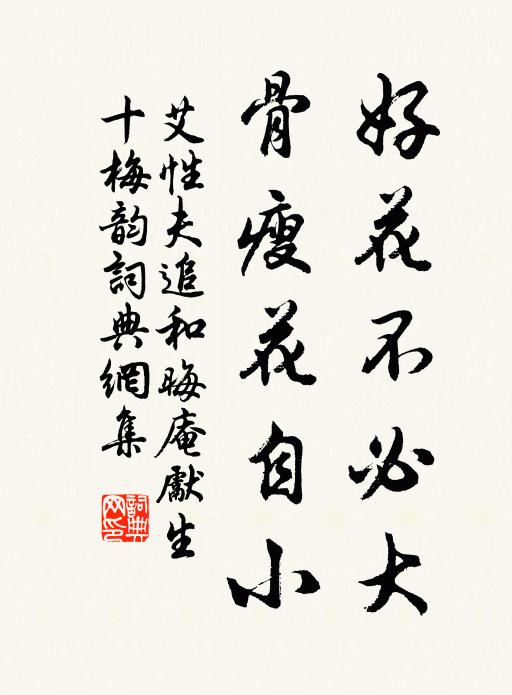 好花不必大
骨瘦花自小
艾性夫追和晦庵獻生
十梅韵詞典網集
詞典网印